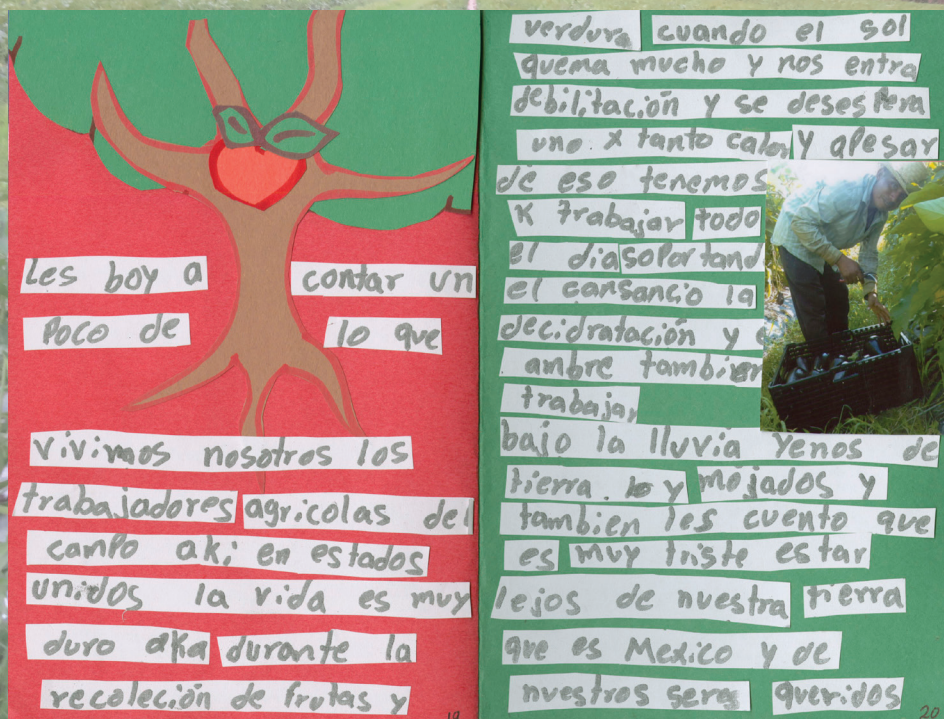 Les boy a contar un
Poco de lo que
vivimos nosotros los
trabajadores agricolas del
campo aki en estados
unidos la vida es muy
duro aka durante la
recoleción de frutas y
19
verdura cuando el sol
quema mucho y nos entra
debilitación y se desespera
uno x tanto calor y apesar
de eso tenemos
k trabajar todo
el dia soportand
el cansancio la
decidratación y
ambre tambien
trabajar
bajo la lluvia yenos de
tierra y mojados y
tambien les cuento que
es muy triste estar
lejos de nuestra tierra
que es Mexico y de
nuestros seres queridos
20